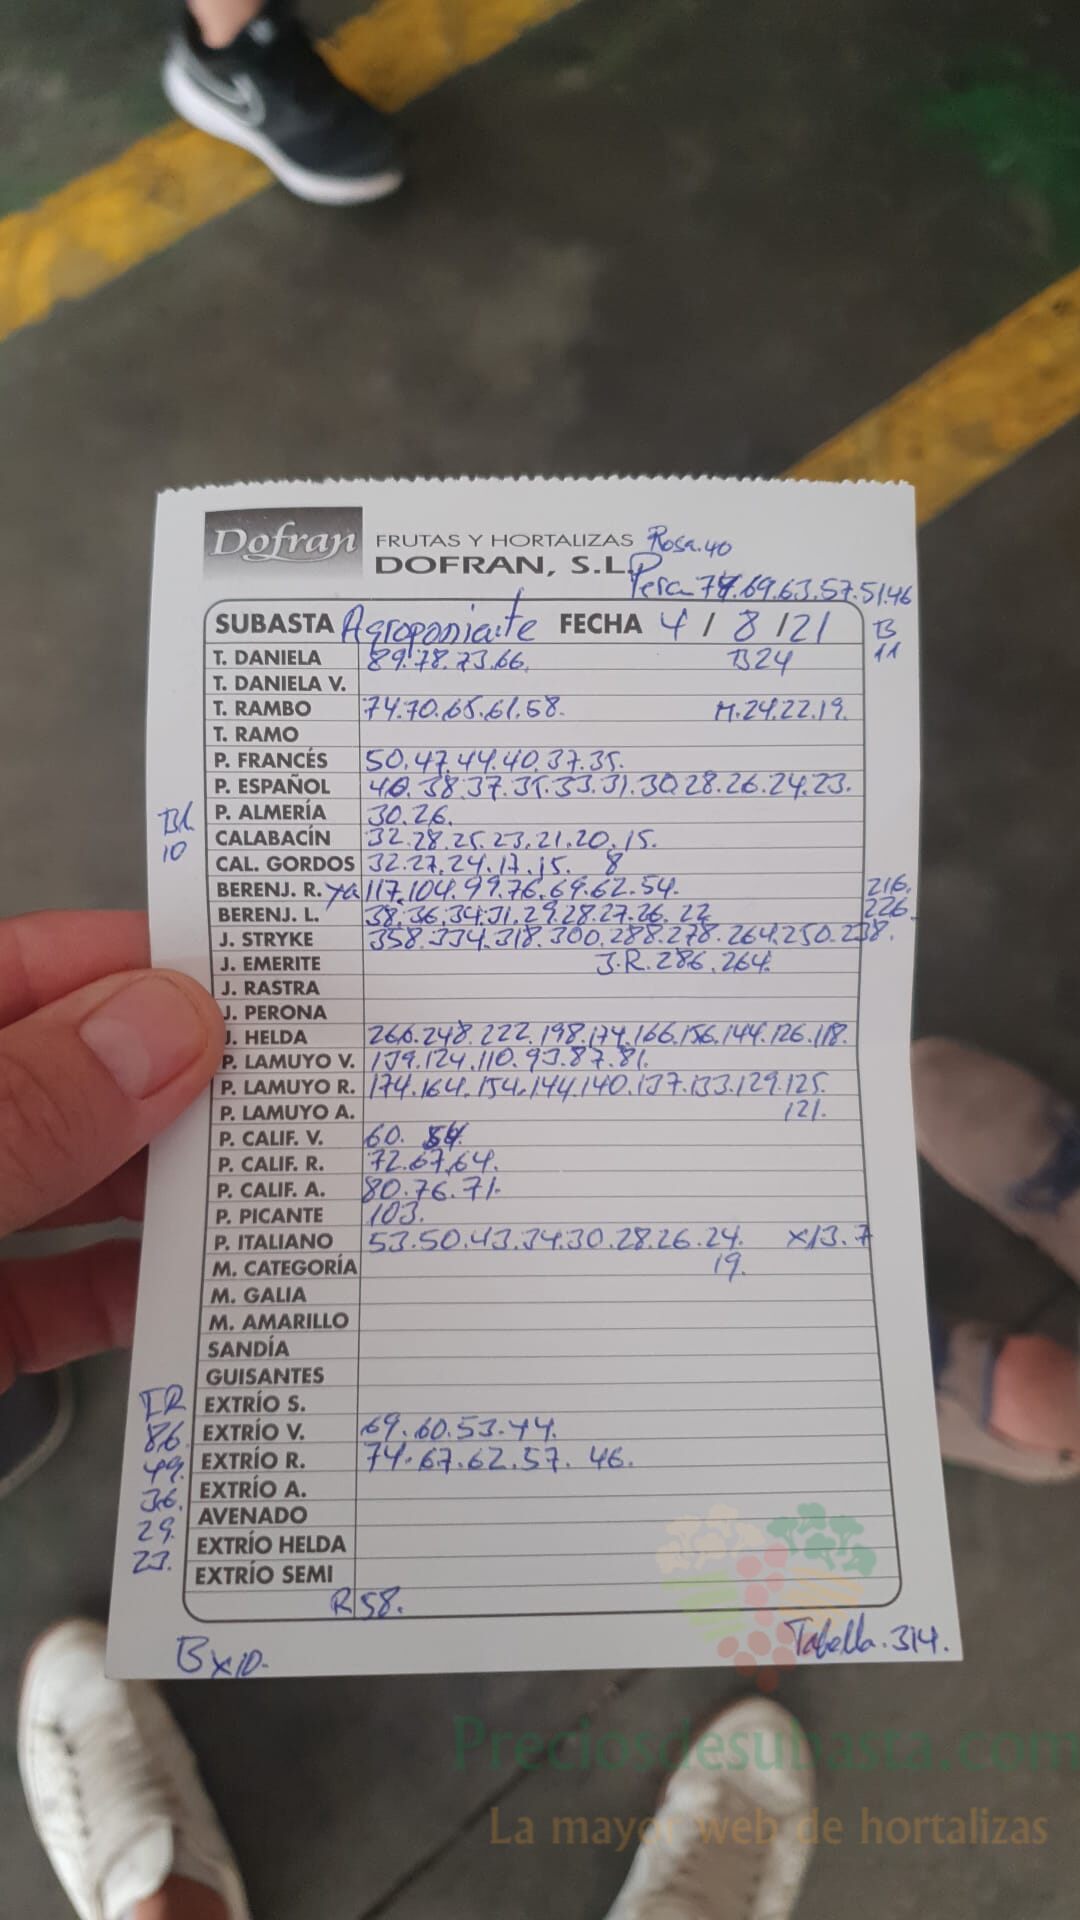 Dofran FRUTAS Y HORTALIZAS Rosa.40
DOFRAN, S.L. Pera 74.69.63.57.51.46
SUBASTA Agroponiente FECHA 4 / 8 /21 B
T. DANIELA 89.78.73.66. B24 11
T. DANIELA V.
T. RAMBO 74.70.65.61.58. M.24.22.19.
T. RAMO
P. FRANCÉS 50.47.44.40.37.35.
P. ESPAÑOL 40.38.37.35.33.31.30.28.26.24.23.
P. ALMERÍA 30.26.
BL
CALABACÍN 32.28.25.23.21.20.15.
10
CAL. GORDOS 32.27.24.17.15. 8
BERENJ. R. ya 117.104.99.76.69.62.54. 216.
BERENJ. L. 38.36.34.31.29.28.27.26.22 226.
J. STRYKE 358.334.318.300.288.278.264.250.238.
J. EMERITE J.R.286.264.
J. RASTRA
J. PERONA
J. HELDA 266.248.222.198.174.166.156.144.126.118.
P. LAMUYO V. 139.124.110.93.87.81.
P. LAMUYO R. 174.164.154.144.140.137.133.129.125.
P. LAMUYO A. 121.
P. CALIF. V. 60.
P. CALIF. R. 72.67.64.
P. CALIF. A. 80.76.71.
P. PICANTE 103.
P. ITALIANO 53.50.43.34.30.28.26.24. x13.7
M. CATEGORÍA 19.
M. GALIA
M. AMARILLO
SANDÍA
GUISANTES
EXTRÍO S.
86. EXTRÍO V. 69.60.53.44.
49. EXTRÍO R. 74.67.62.57. 46.
36. EXTRÍO A.
29. AVENADO
23. EXTRÍO HELDA
EXTRÍO SEMI
R 58.
Bx10. Tabella.314.
Preciosdesubasta.com
La mayor web de hortalizas